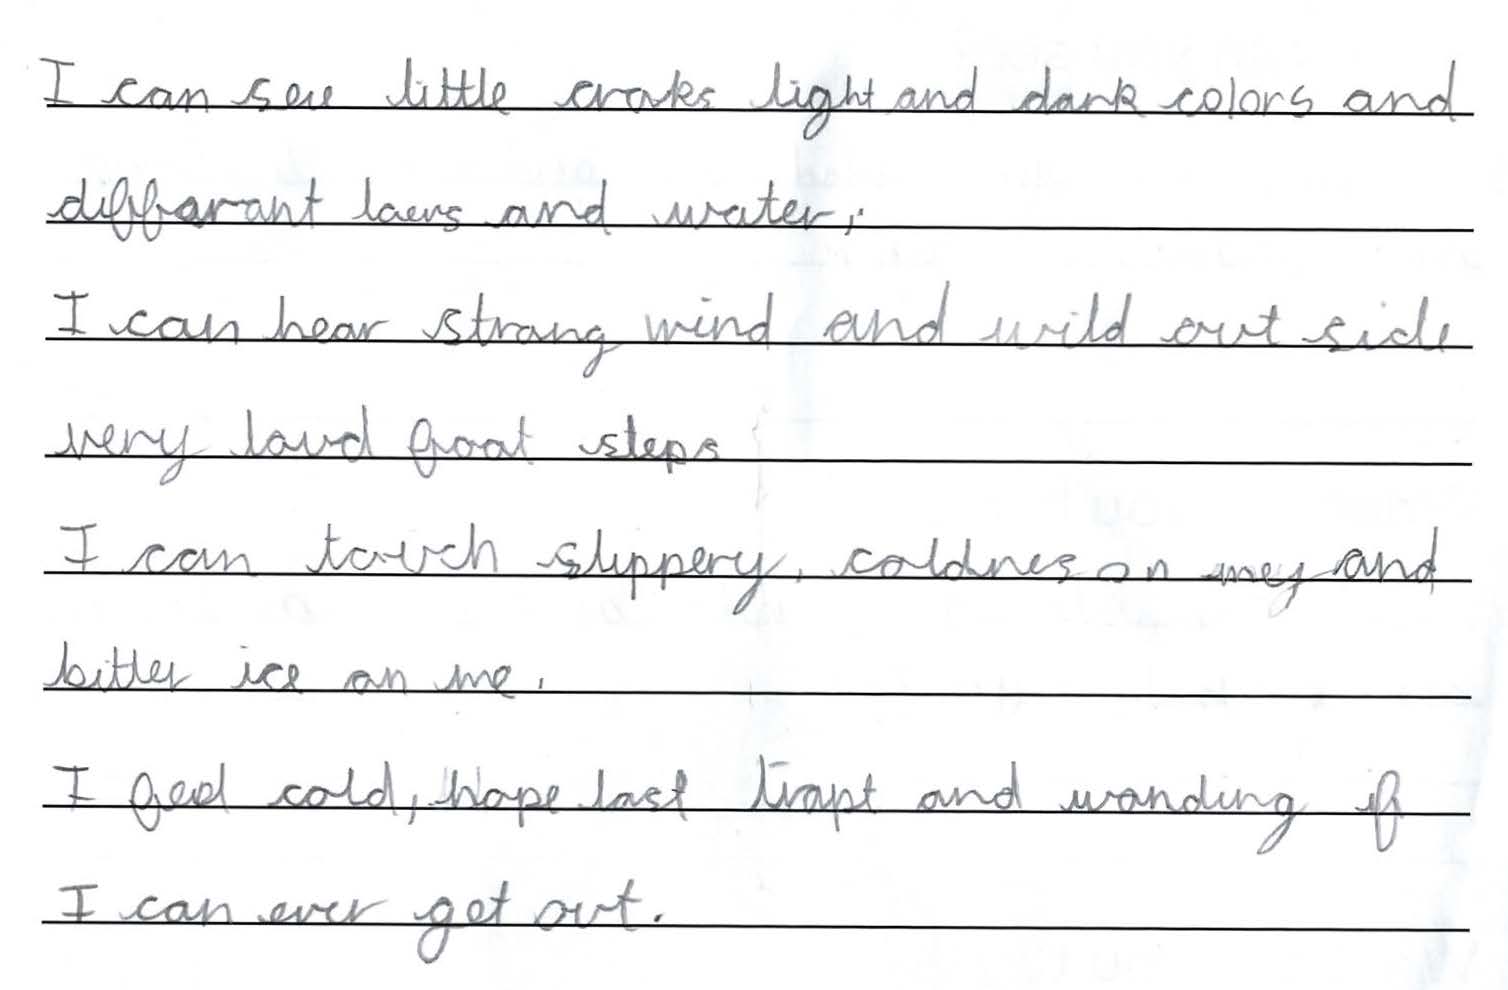 I can see little craks light and dark colors and
diffarant laers and water,
I can hear strong wind and wild out side
very loud foot steps
I can touch slippery, coldnes on mey and
bitter ice on me.
I feel cold, hope last trapt and wonding if
I can ever get out.